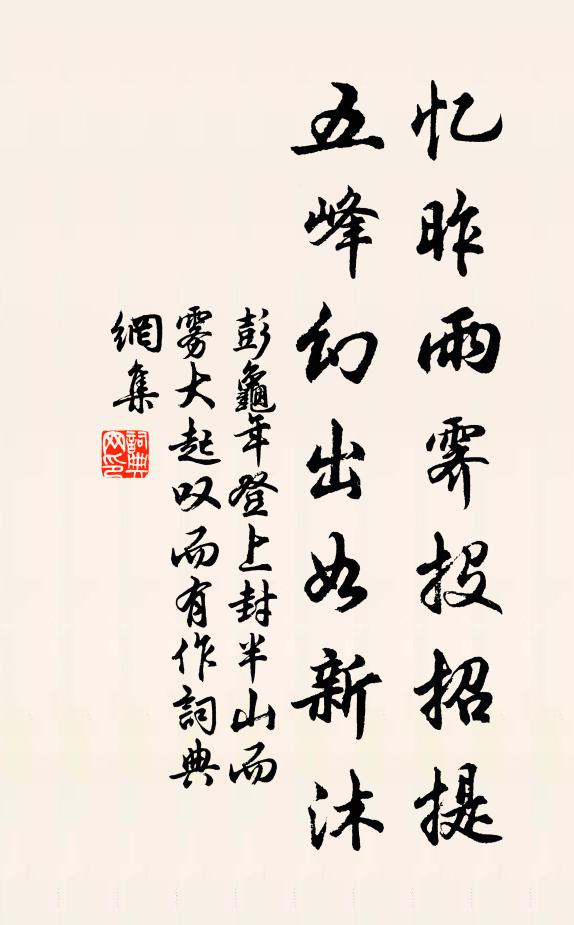 忆昨雨霁投招提
五峰幻出如新沐
彭龜年登上封半山而
雾大起叹而有作詞典
網集
詞典网印